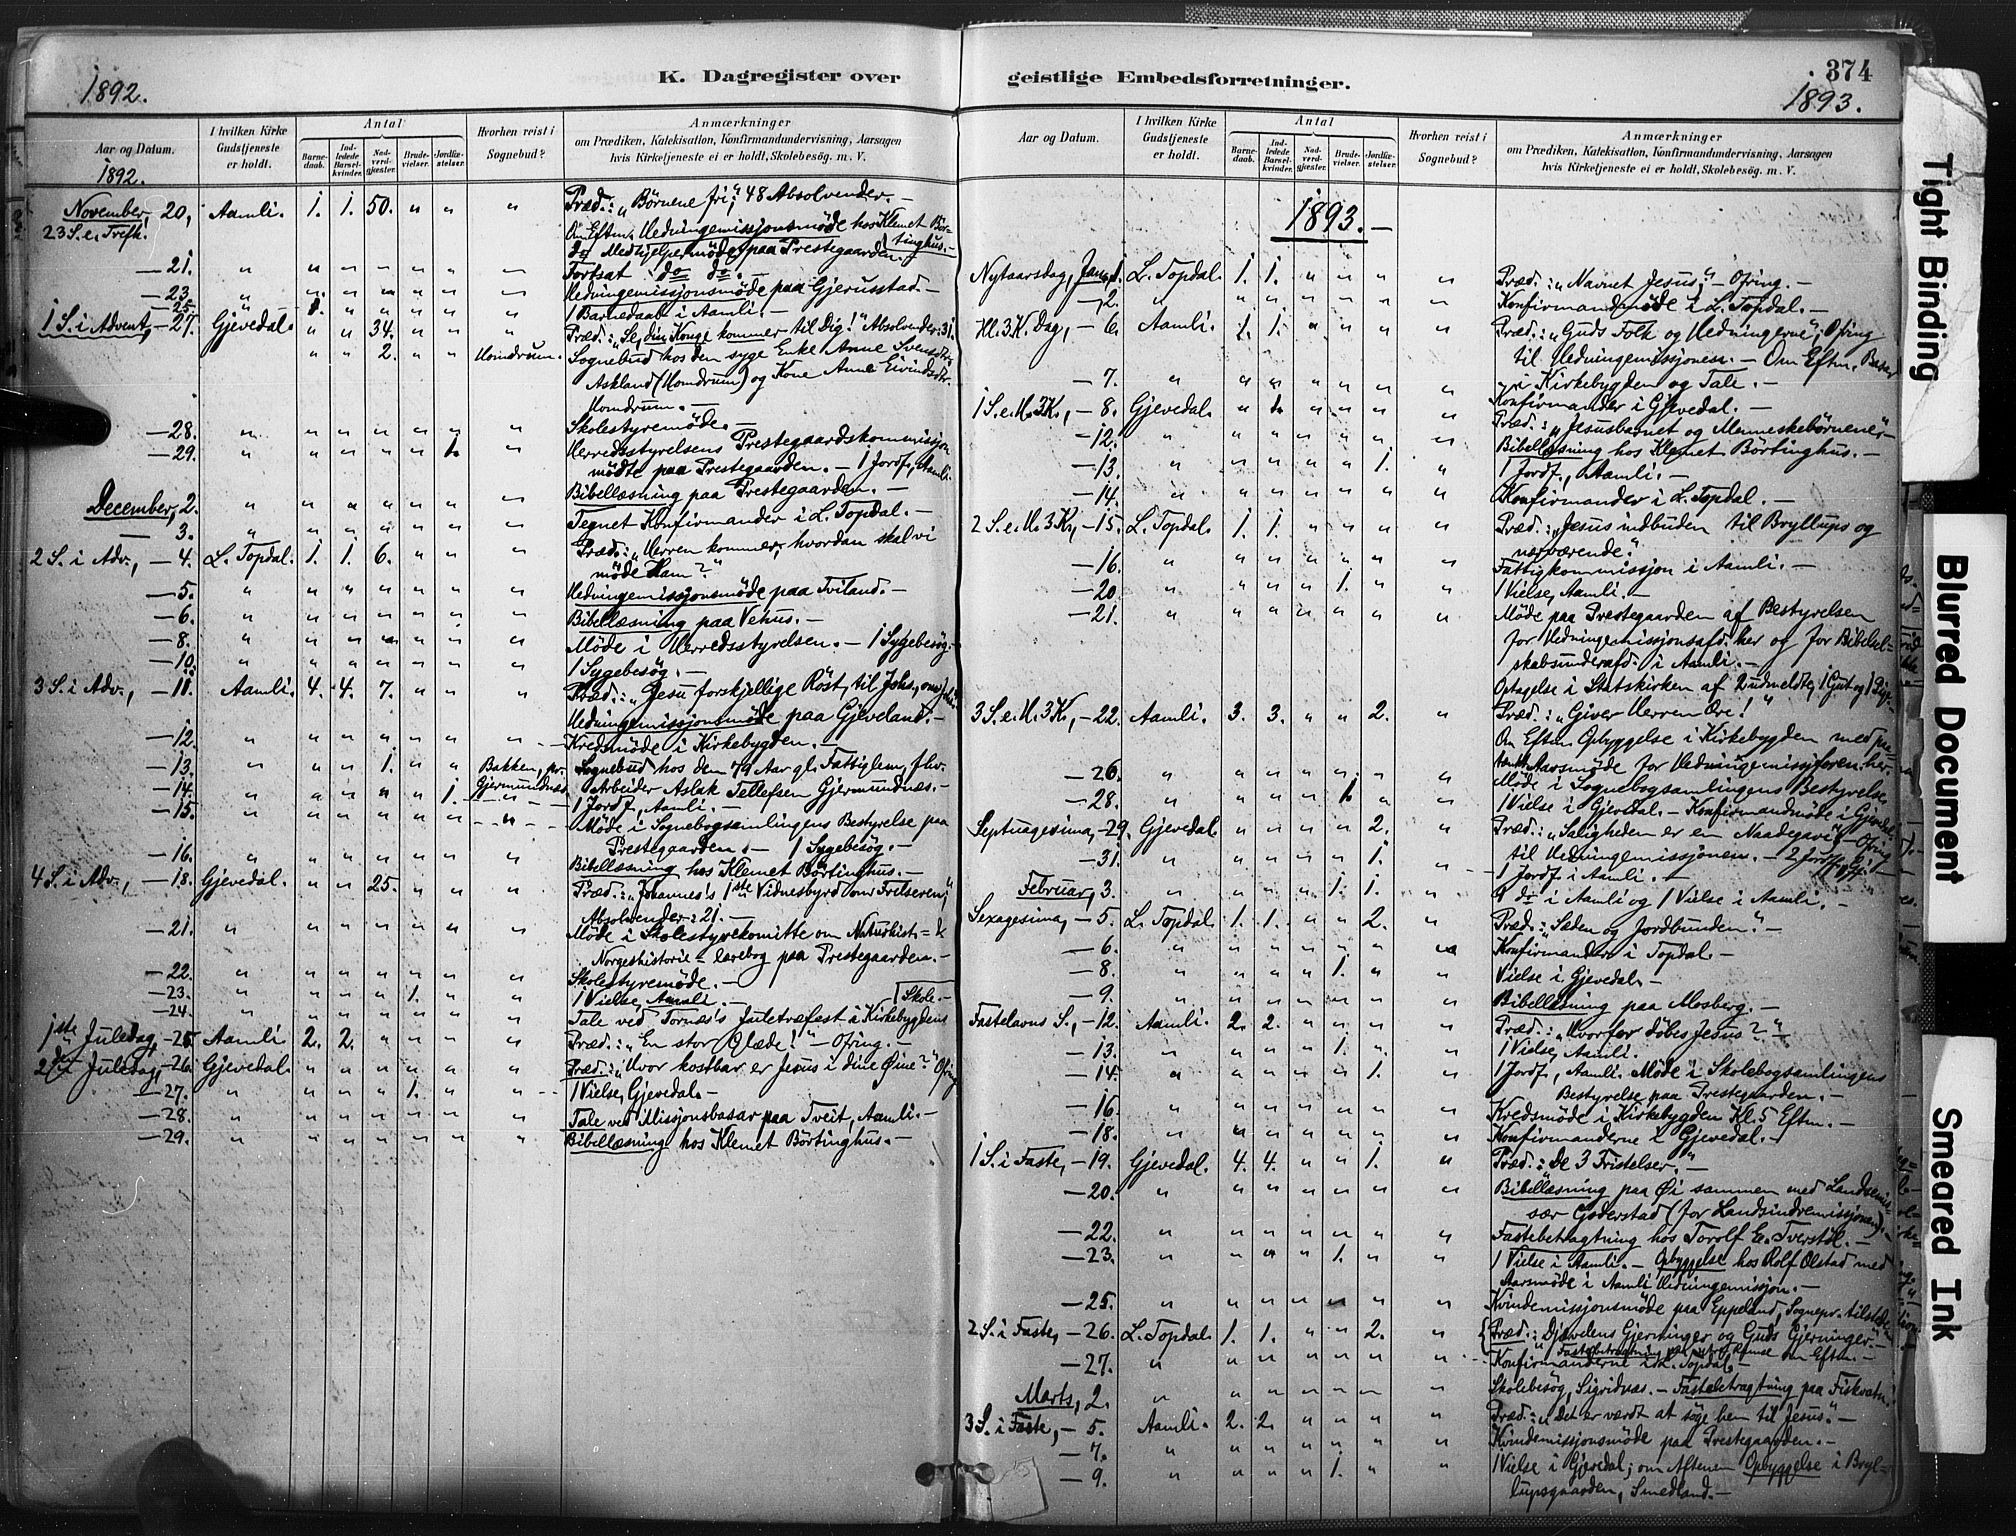 K. Dagregister over
1892.
Aar og Datum.
I hvilken Kirke Gudstjeneste er holdt.
Antal
Barnedaab.
Indledede Barselkvinder.
Nadverdgjester.
Brudevielser.
Jordfæstelser.
Hvorhen reist i Sognebud?
Anmærkninger
om Prædiken, Katekisation, Konfirmandundervisning, Aarsagen
hvis Kirketjeneste ei er holdt, Skolebesøg. m. V.
1892.
November, 20, Aamli. 1. 1. 50. " " " Præd.: "Börnene fri," 48 Absolvender. -
23 S. e. Trefh. Om Eftm. Hedningemissjonsmöde hos Klemet Bör-
tinghus. -
do Medhjelpermöde paa Prestegaarden.
- 21. " " " " " " " Fortsat do do. -
- 23. " " " " " " " Hedningemissjonsmöde paa Gjerusstad. -
- 25. " 1. " " " " " 1 Barnedaab i Aamli. -
1 S. i Advent, - 27. Gjevedal. " " 34. " " " Præd.: "Se, din Konge kommer til Dig!" Absolvender: 31.
" " 2. " " Homdrum. Sognebud hos den syge Enke Anne Svensdtr.
Askland (Homdrum) og Kone Anne Eivindsdtr.
Homdrum. -
- 28. " " " " " " " Skolestyremöde. -
- 29. " " " " " 1. " Herredsstyrelsens Prestegaardskommissjon
mödte paa Prestegaarden. - 1 Jordf., Aamli.
December, 2. " " " " " " " Bibellæsning paa Prestegaarden. -
- 3. " " " " " " " Tegnet Konfirmander i L. Topdal. -
2 S. i Adv., - 4. L. Topdal. 1. 1. 6. " " " Præd.: "Herren kommer, hvordan skal vi
möde Ham?"
- 5. " " " " " " " Hedningemissjonsmöde paa Tviland. -
- 6. " " " " " " " Bibellæsning paa Vehus. -
- 8. " " " " " " " Möde i Herredsstyrelsen. - 1 Sygebesög. -
- 10. " " " " " " " 1 Sygebesög. -
3 S. i Adv., - 11. Aamli. 4. 4. 7. " " " Præd.: "Jesu forskjellige Röst, til Johs.,
Hedningemissjonsmöde paa Gjeveland. -
- 12. " " " " " " " Kredsmöde i Kirkebygden. -
- 13. " " " 1. " " Bakken, pr. Sognebud hos den 79 Aar gl. Fattiglem, fhv.
- 14. " " " " " 1. Gjermundnes. Arbeider Aslak Tellefsen Gjermundnæs. -
1 Jordf., Aamli. -
- 15. " " " " " " " Möde i Sognebogsamlingens Bestyrelse paa
Prestegaarden. - 1 Sygebesög. -
- 16. " " " " " " " Bibellæsning hos Klemet Börtinghus. -
4 S. i Adv., - 18. Gjevedal. " " 25. " " " Præd.: "Johannes's 1ste Vidnesbyrd om Frelseren,"
Absolvender: 21. -
- 21. " " " " " " " Möde i Skolestyrekomitte om Naturhist=
Norgeshistorie = lærebog paa Prestegaarden. -
- 22. " " " " " " " Skolestyremöde. -
- 23. " " " " 1. " " 1 Vielse, Aamli. -
Skole. -
- 24. " " " " " " " Tale ved Tornæs's Juletræfest i Kirkebygdens
1ste Juledag, - 25. Aamli 2. 2. " " " " Præd.: "En stor Glæde!" - Ofring. -
2den Juledag, - 26. Gjevedal. " " " " " " Præd.: "Hvor kostbar er Jesus i dine Øine?" Ofring
- 27. " " " " 1. " " 1 Vielse, Gjevedal. -
- 28. " " " " " " " Tale ved Missjonsbasar paa Tveit, Aamli. -
- 29. " " " " " " " Bibellæsning hos Klemet Börtinghus. -
geistlige Embedsforretninger.
374
1893.
Aar og Datum.
I hvilken Kirke Gudstjeneste er holdt.
Antal
Barnedaab.
Indledede Barselkvinder.
Nadverdgjester.
Brudevielser.
Jordfæstelser.
Hvorhen reist i Sognebud?
Anmærkninger
om Prædiken, Katekisation, Konfirmandundervisning, Aarsagen
hvis Kirketjeneste ei er holdt, Skolebesøg. m. V.
1893. -
Nytaarsdag, Jan. 1. L. Topdal. 1. 1. " " " " Præd.: "Navnet Jesus," - Ofring. -
- 2. " " " " " " " Konfirmandmöde i L. Topdal. -
Hl. 3 K. Dag, - 6. Aamli. 1. 1. " " " " Præd.: "Guds Folk og Hedningerne," Ofring
til Hedningemissjonen. - Om Eftm.
i Kirkebygden og Tale. -
- 7. " " " " " " " Konfirmander i Gjevedal. -
1 S. e. H. 3 K., - 8. Gjevedal. " 1. " " " " Præd.: "Jesusbarnet og Menneskebörnene," -
- 12. " " " " " " " Bibellæsning hos Klemet Börtinghus. -
- 13. " " " " " 1. " 1 Jordf., Aamli. -
- 14. " " " " " " " Konfirmander i L. Topdal. -
2 S. e. H. 3 K., - 15. L. Topdal. 1. 1. " " " " Præd.: "Jesus indbuden til Bryllups og
nærværende."
- 16. " " " " " " " Fattigkommissjon i Aamli. -
- 20. " " " " 1. " " 1 Vielse, Aamli. -
- 21. " " " " " " " Möde paa Prestegaarden af Bestyrelsen
for Hedningemissjonsafd. her og for Bibelsel=
skabsunderafd. i Aamli. -
Optagelse i Statskirken af 2 udmeldte, 1 Gut og 1 Pige. -
3 S. e. H. 3 K., - 22. Aamli. 3. 3. " " 2. " Præd.: "Giver Herren Ære!"
Om Eftm. Opbyggelse i Kirkebygden med
Aarsmöde for Hedningemissj.foren. her.
- 26. " " " " " " " Möde i Sognebogsamlingens Bestyrelse.
- 28. " " " " 1. " " 1 Vielse i Gjevedal. - Konfirmandmöde i Gjevedal.
Septuagesima, - 29. Gjevedal. " " " " 2. " Præd.: "Saligheden er en Naadegave" - Ofring
til Hedningemissjonen. - 2 Jordf. i Gjev.
- 31. " " " " " 1. " 1 Jordf. i Aamli. -
Februar, 3. " " " " 1. 1. " 1 do i Aamli og 1 Vielse i Aamli. -
Sexagesima, - 5. L. Topdal. 1. 1. " " 2. " Præd.: "Sæden og Jordbunden." -
- 6. " " " " " " " Konfirmander i Topdal. -
- 8. " " " " 1. " " Vielse i Gjevedal. -
- 9. " " " " " " " Bibellæsning paa Mosberg. -
Fastelavns S., - 12. Aamli. 2. 2. " " " " Præd.: "Hvorfor döbes Jesus?" -
- 13. " " " " 1. " " 1 Vielse, Aamli.
- 14. " " " " " 1. " 1 Jordf., Aamli. Möde i Skolebogsamlingens
Bestyrelse paa Prestegaarden. -
- 16. " " " " " " " Kredsmöde i Kirkebygden Kl. 5 Eftm. -
- 18. " " " " " " " Konfirmanderne i Gjevedal. -
1 S. i Faste, - 19. Gjevedal. 4. 4. " " 1. " Præd.: "De 3 Fristelser." -
- 20. " " " " " " " Bibellæsning paa Øi sammen med Landsemis=
sær Goderstad (for Landsindremissjonen). -
- 22. " " " " " " " Fastebetragtning hos Torolf E. Tverstöl. -
- 23. " " " " 1. " " 1 Vielse i Aamli. - Opbyggelse hos Rolf Olstad med
Aarsmöde i Aamli Hedningemissjon. -
- 25. " " " " " " " Kvindemissjonsmöde paa Eppeland, Sognepr. tilstede.
2 S. i Faste, - 26. L. Topdal. 1. 1. " " 2. " Præd.: "Djævelens Gjerninger og Guds Gjerninger." -
Fastebetragtning om Eftm. -
- 27. " " " " " " " Konfirmanderne i L. Topdal. -
Marts, 2. " " " " " " " Skolebesög, Sigridnæs. - Fastebetragtning paa Fiskvatn.
3 S. i Faste, - 5. Aamli. 2. 2. " " " " Præd.: "Det er værdt at söge hen til Jesus." -
- 7. " " " " " " " Kvindemissjonsmöde paa Prestegaarden. -
- 9. " " " " 1. " " 1 Vielse i Gjevedal; om Aftenen Opbyggelse i Bryl=
lupsgaarden, Smedland. -
Tight Binding
Blurred Document
Smeared Ink